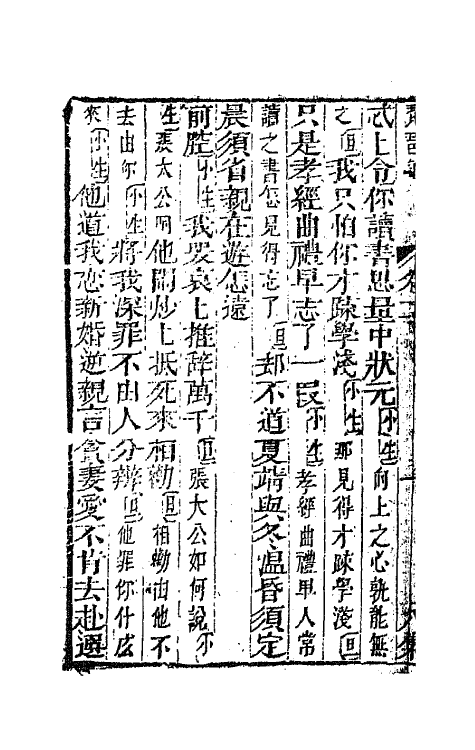 忒上令你讀書思量中狀元小生向上之心孰能無
之旦我只怕你才疎學淺小生那見得才疎學淺旦
只是孝經曲禮早忘了一段小生孝經曲禮早人常
讀之書怎見得忘了旦却不道夏凊與冬温昏須定
晨須省親在遊怎遠
前腔小生我哭哀上推辭萬千旦張太公如何說小
生張太公呵他閙炒上抵死來相勸旦相勸由他不
去由你小生將我深罪不由人分辨旦他罪你什庅
來小生他道我恋新婚逆親言貪妻愛不肯去赴選